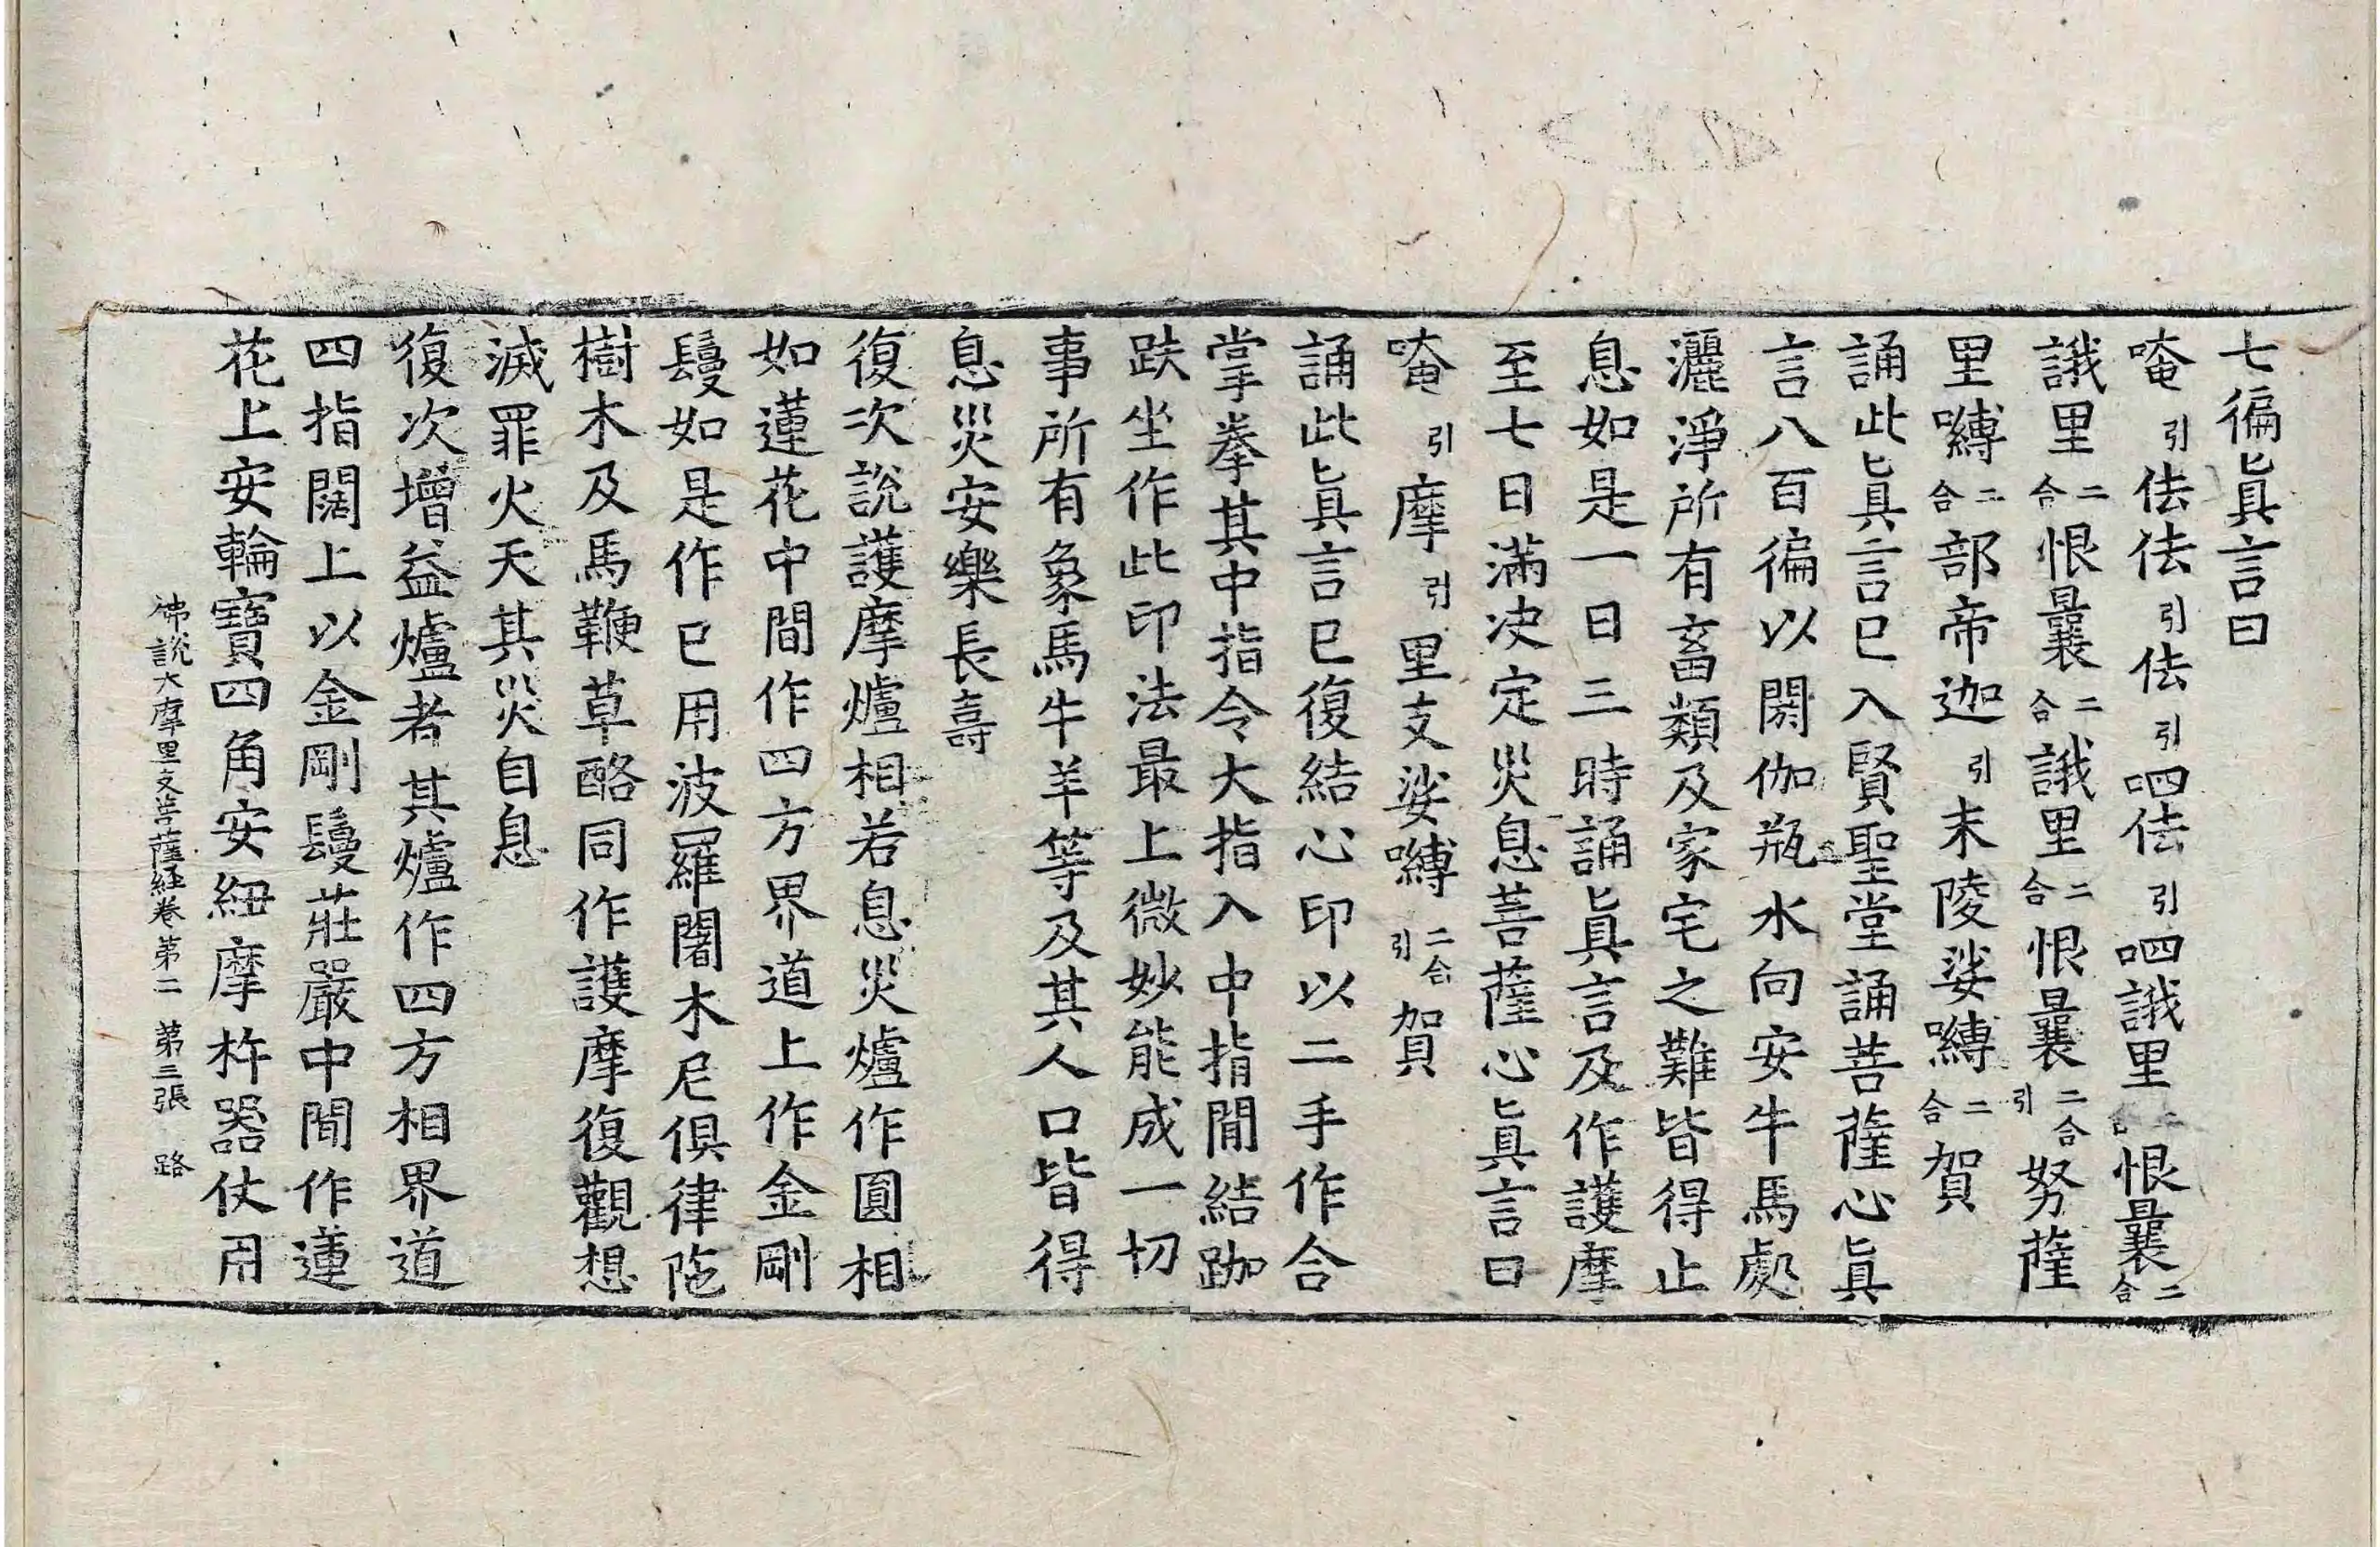 七徧眞言曰
唵引佉佉引佉引呬佉引呬誐里二合恨曩二合
誐里二合恨曩二合誐里二合恨曩二合引努薩
里嚩二合部帝迦引末陵娑嚩二合賀
誦此眞言已入賢聖堂誦菩薩心眞
言八百徧以閼伽瓶水向安牛馬處
灑淨所有畜類及家宅之難皆得止
息如是一日三時誦眞言及作護摩
至七日滿决定災息菩薩心眞言曰
唵引摩引里支娑嚩二合引賀
誦此眞言已復結心印以二手作合
掌拳其中指令大指入中指間結跏
趺坐作此印法最上微妙能成一切
事所有象馬牛羊等及其人口皆得
息災安樂長壽
復次說護摩爐相若息災爐作圓相
如蓮花中間作四方界道上作金剛
鬘如是作已用波羅闍木尼俱律陁
樹木及馬鞭草酪同作護摩復觀想
滅罪火天其災自息
復次增益爐者其爐作四方相界道
四指闊上以金剛鬘莊嚴中間作蓮
花上安輪寶四角安紐摩杵器仗用
佛說大摩里支菩薩経卷第二 第三張 路